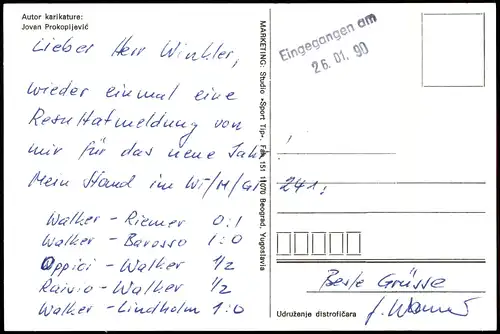 Autor karikature:
Jovan Prokopljević
Lieber Herr Winkler,
wieder einmal eine
Resultatmeldung von
mir für das neue Jahr!
Mein Stand im WT/M/GT 241:
Walker - Riemer 0:1
Walker - Barosso 1:0
Oppici - Walker 1/2
Raivio - Walker 1/2
Walker - Lindholm 1:0
MARKETING: Studio »Sport Tip«, Fah 151 11070 Beograd, Yugoslavia
Eingegangen am
26. 01. 90
Beste Grüsse
Udruženje distrofičara